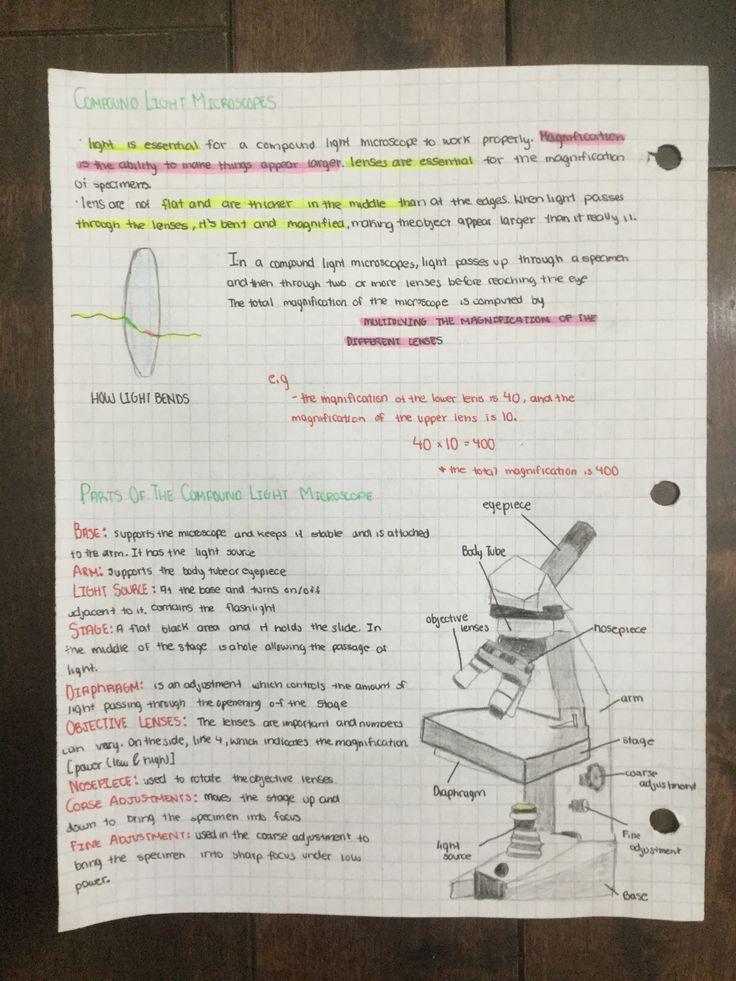 COMPOUND LIGHT MICROSCOPES
· light is essential for a compound light microscope to work properly. Magnification
is the ability to make things appear larger. lenses are essential for the magnification
of specimens.
· lens are not flat and are thicker in the middle than at the edges. When light passes
through the lenses, it's bent and magnified, making the object appear larger than it really is.
In a compound light microscopes, light passes up through a specimen
and then through two or more lenses before reaching the eye
The total magnification of the microscope is computed by
MULTIPLYING THE MAGNIFICATION OF THE
DIFFERENT LENSES
HOW LIGHT BENDS
e.g
- the magnification of the lower lens is 40, and the
magnification of the upper lens is 10.
40 × 10 = 400
* the total magnification is 400
PARTS OF THE COMPOUND LIGHT MICROSCOPE
BASE: supports the microscope and keeps it stable and is attached
to the arm. It has the light source
ARM: supports the body tube or eyepiece
LIGHT SOURCE: At the base and turns on/off
adjacent to it, contains the flashlight
STAGE: A flat black area and it holds the slide. In
the middle of the stage is a hole allowing the passage of
light.
DIAPHRAGM: is an adjustment which controls the amount of
light passing through the openening of the stage
OBJECTIVE LENSES: The lenses are important and numbers
can vary. On the side, line 4, which indicates the magnification
[power (low & high)]
NOSEPIECE: used to rotate the objective lenses
CORSE ADJUSTMENTS: moves the stage up and
down to bring the specimen into focus
FINE ADJUSTMENT: used in the coarse adjustment to
bring the specimen into sharp focus under low
power.
eyepiece
Body Tube
objective
lenses
nosepiece
arm
stage
coarse
adjustment
Diaphragm
Fine
adjustment
light
source
Base